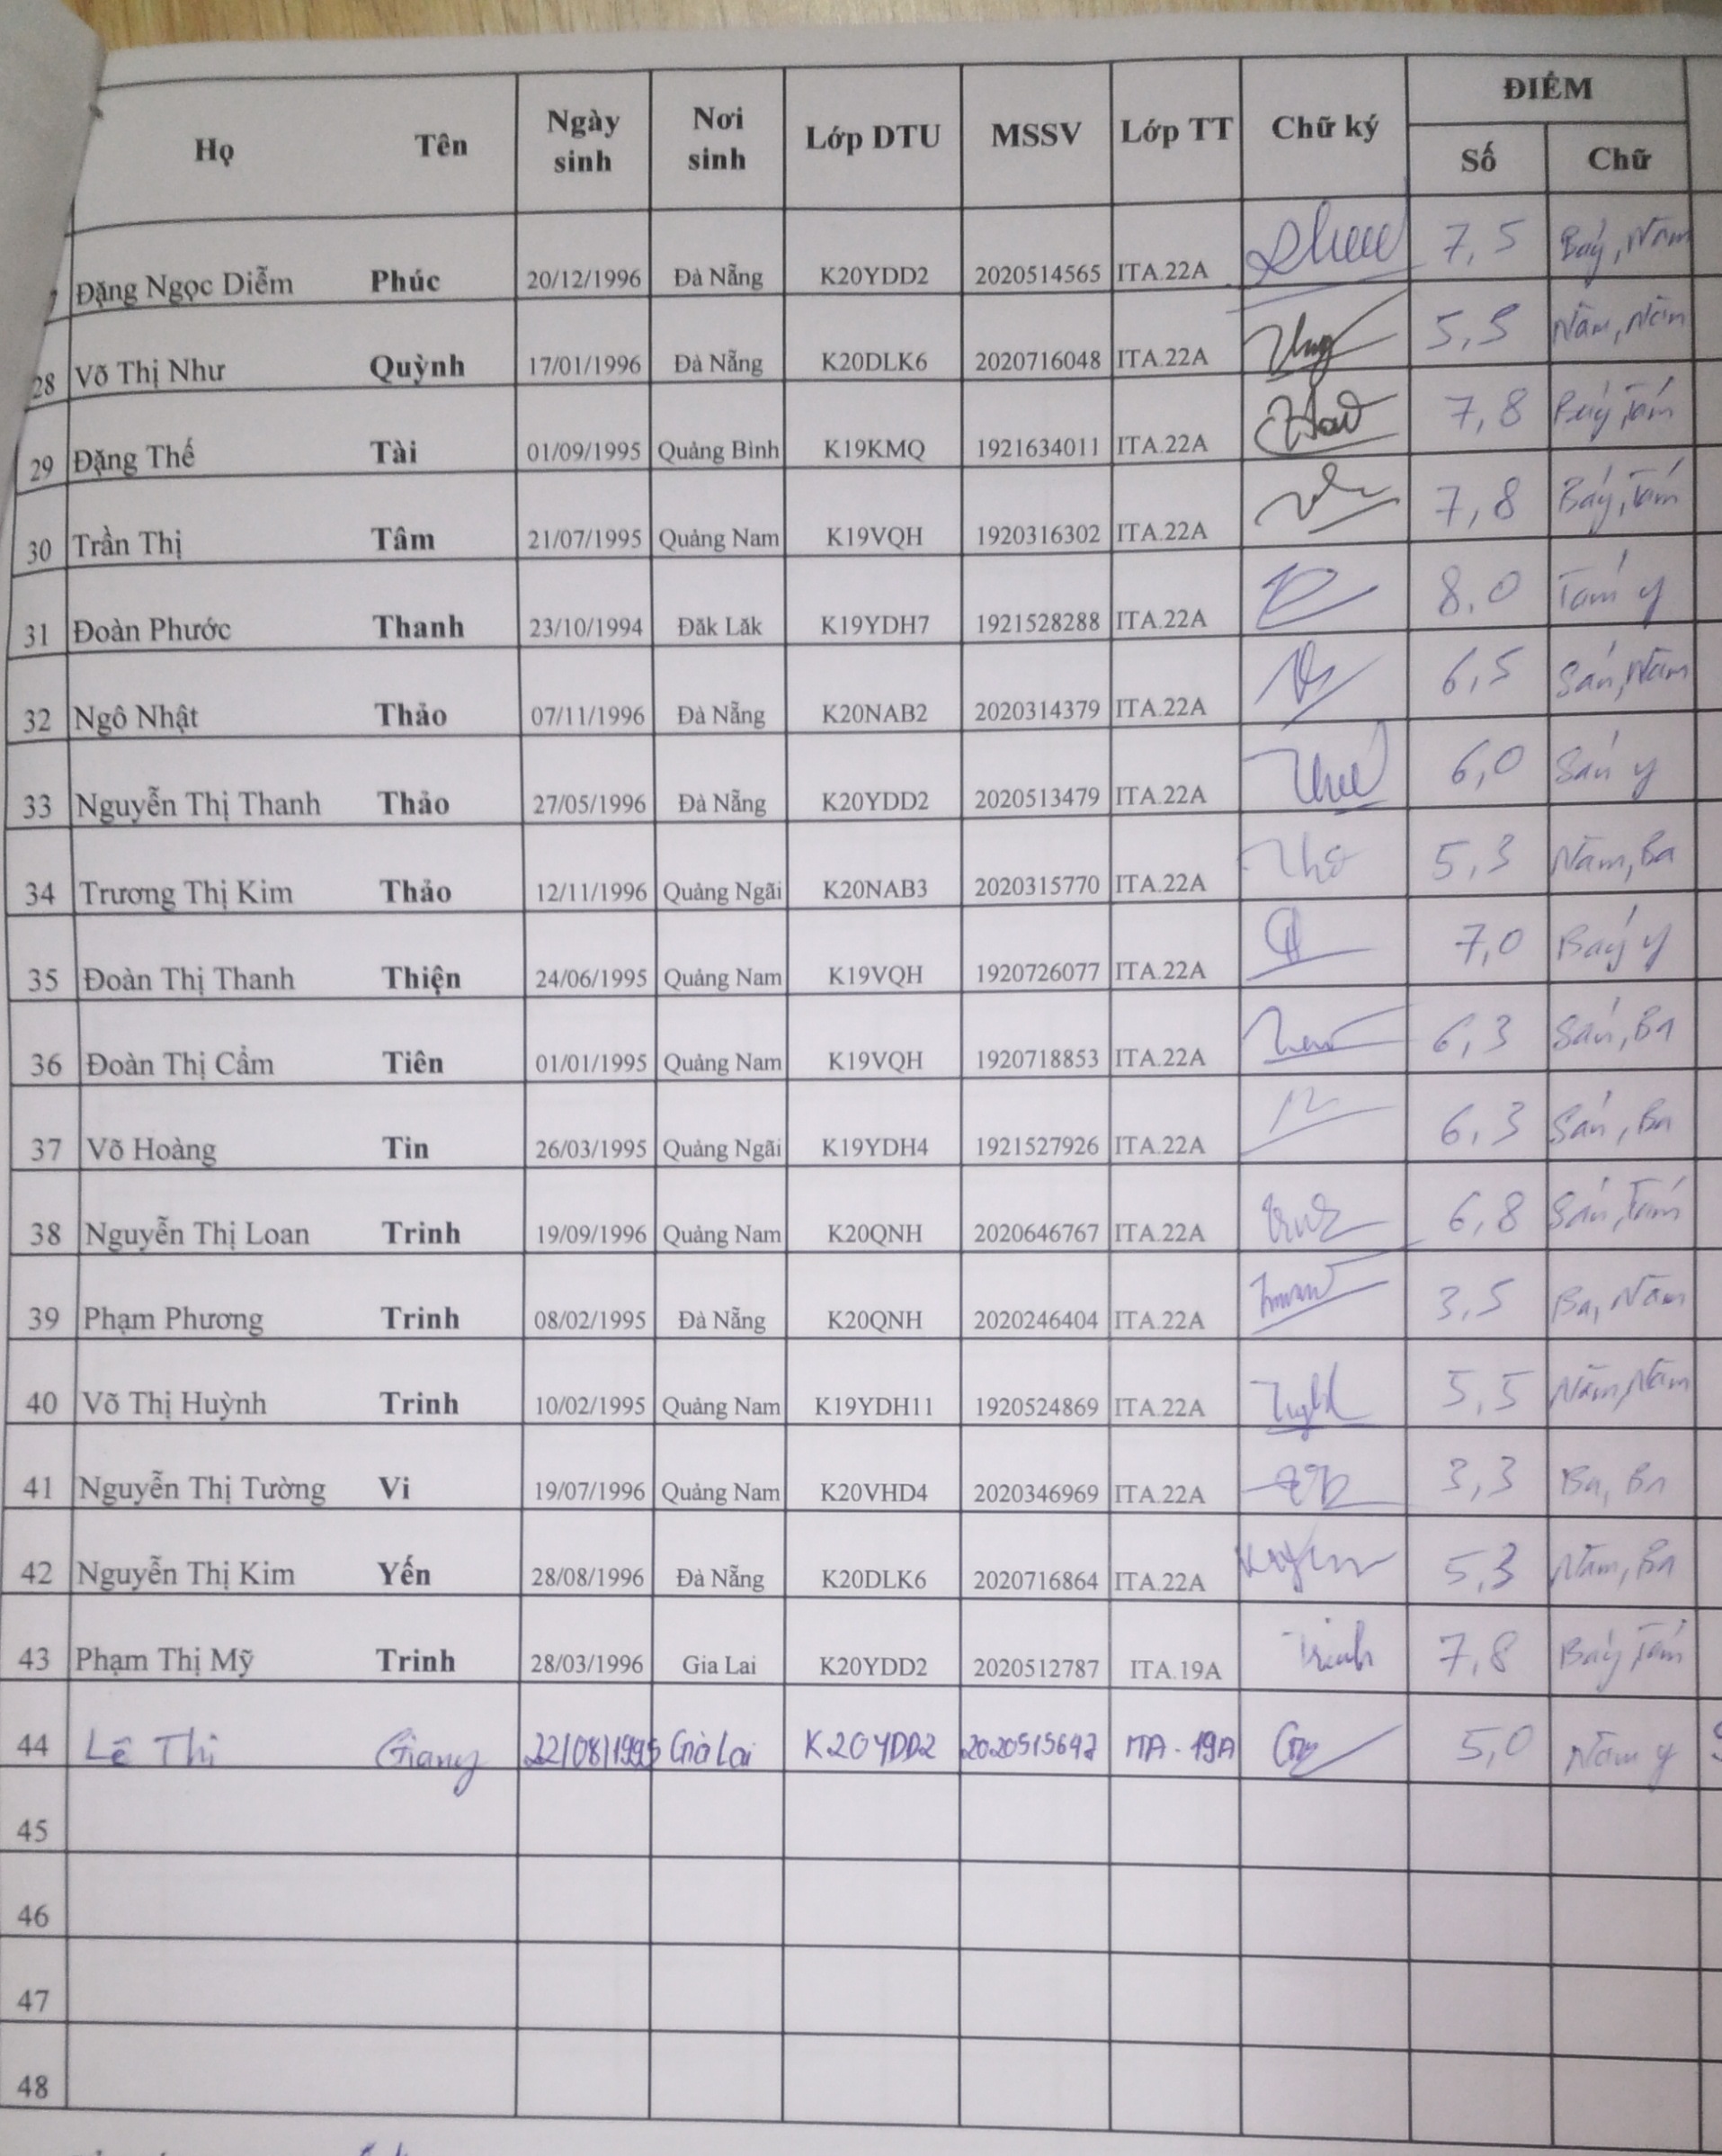 Họ Tên Ngày sinh Nơi sinh Lớp DTU MSSV Lớp TT Chữ ký ĐIỂM Số Chữ
Đặng Ngọc Diễm Phúc 20/12/1996 Đà Nẵng K20YDD2 2020514565 ITA.22A 7,5 Bảy, Năm
28 Võ Thị Như Quỳnh 17/01/1996 Đà Nẵng K20DLK6 2020716048 ITA.22A 5,5 Năm, Năm
29 Đặng Thế Tài 01/09/1995 Quảng Bình K19KMQ 1921634011 ITA.22A 7,8 Bảy, Tám
30 Trần Thị Tâm 21/07/1995 Quảng Nam K19VQH 1920316302 ITA.22A 7,8 Bảy, Tám
31 Đoàn Phước Thanh 23/10/1994 Đăk Lăk K19YDH7 1921528288 ITA.22A 8,0 Tám y
32 Ngô Nhật Thảo 07/11/1996 Đà Nẵng K20NAB2 2020314379 ITA.22A 6,5 Sáu, Năm
33 Nguyễn Thị Thanh Thảo 27/05/1996 Đà Nẵng K20YDD2 2020513479 ITA.22A 6,0 Sáu y
34 Trương Thị Kim Thảo 12/11/1996 Quảng Ngãi K20NAB3 2020315770 ITA.22A 5,3 Năm, Ba
35 Đoàn Thị Thanh Thiện 24/06/1995 Quảng Nam K19VQH 1920726077 ITA.22A 7,0 Bảy y
36 Đoàn Thị Cẩm Tiên 01/01/1995 Quảng Nam K19VQH 1920718853 ITA.22A 6,3 Sáu, Ba
37 Võ Hoàng Tin 26/03/1995 Quảng Ngãi K19YDH4 1921527926 ITA.22A 6,3 Sáu, Ba
38 Nguyễn Thị Loan Trinh 19/09/1996 Quảng Nam K20QNH 2020646767 ITA.22A 6,8 Sáu, Tám
39 Phạm Phương Trinh 08/02/1995 Đà Nẵng K20QNH 2020246404 ITA.22A 3,5 Ba, Năm
40 Võ Thị Huỳnh Trinh 10/02/1995 Quảng Nam K19YDH11 1920524869 ITA.22A 5,5 Năm, Năm
41 Nguyễn Thị Tường Vi 19/07/1996 Quảng Nam K20VHD4 2020346969 ITA.22A 3,3 Ba, Ba
42 Nguyễn Thị Kim Yến 28/08/1996 Đà Nẵng K20DLK6 2020716864 ITA.22A 5,3 Năm, Ba
43 Phạm Thị Mỹ Trinh 28/03/1996 Gia Lai K20YDD2 2020512787 ITA.19A Trinh 7,8 Bảy, Tám
44 Lê Thị Giang 22/08/1995 Gia Lai K20YDD2 2020515647 ITA.19A 5,0 Năm y
45
46
47
48